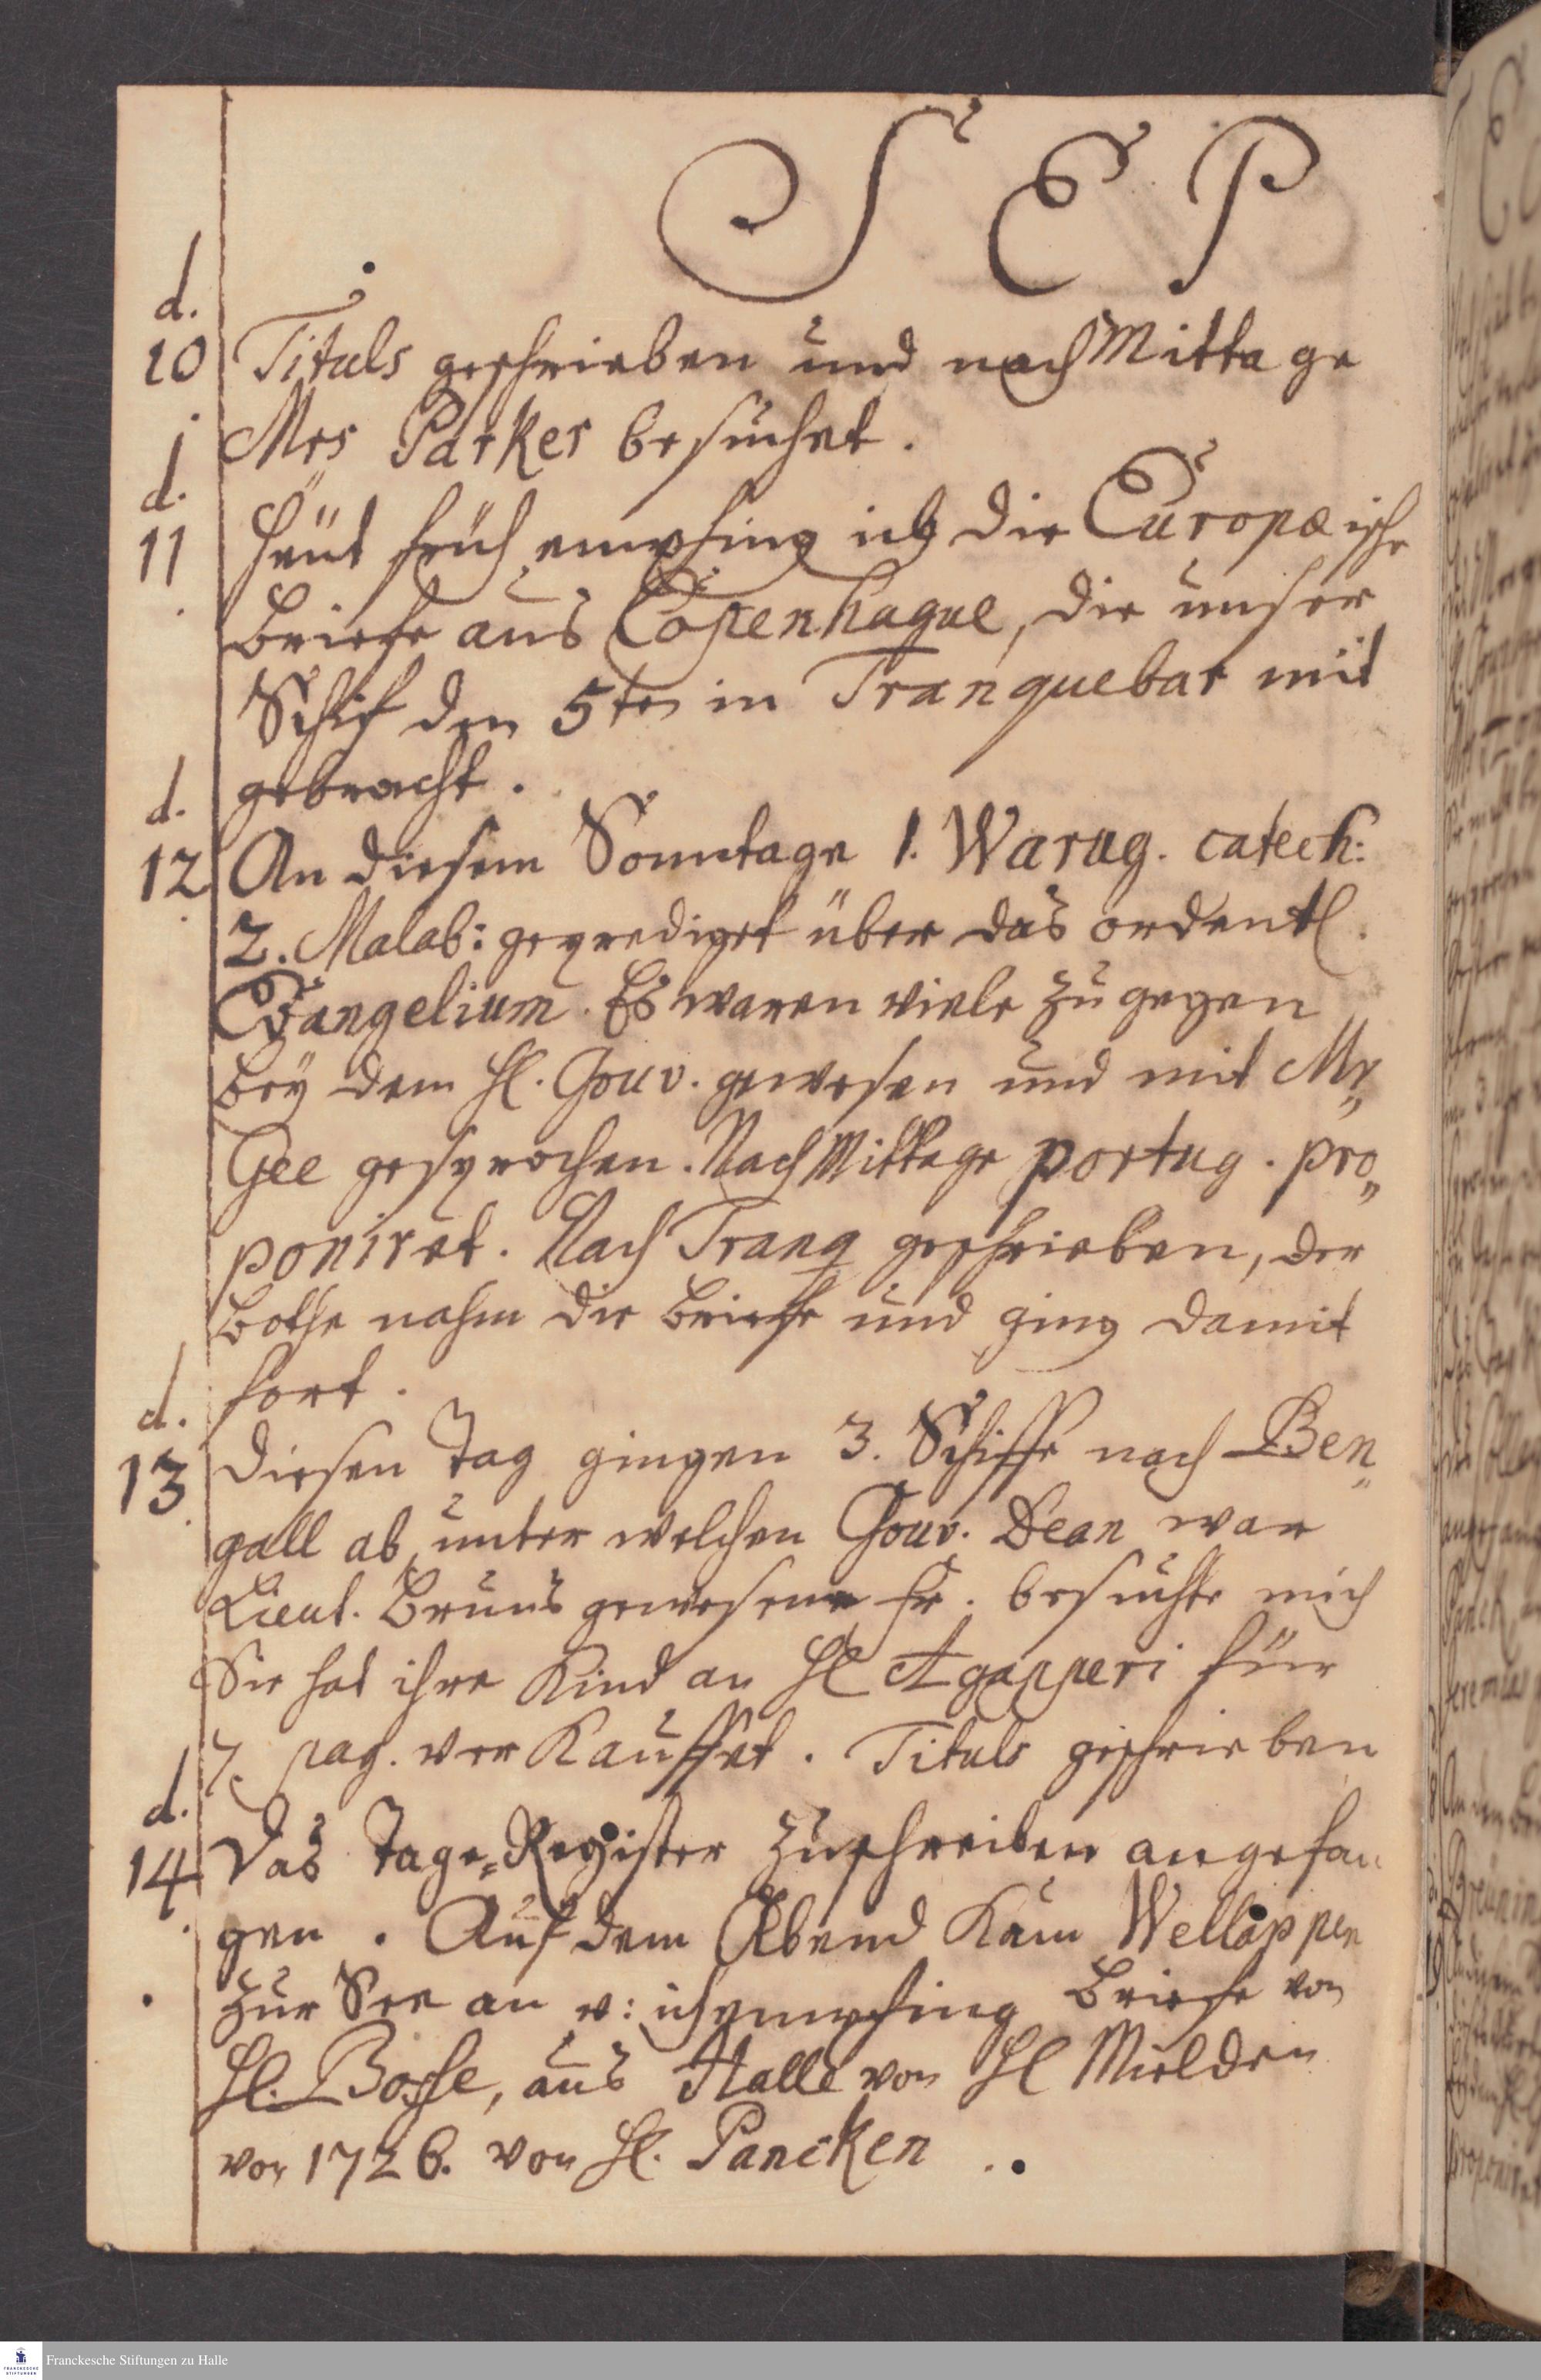 S E P
d.
10 Tituls geschrieben und nach Mittage
Mrs Parker besuchet.
d.
11 Heüt früh empfing ich die Europæische
Briefe aus Copenhague, die unser
Schif den 5ten in Tranquebar mit
gebracht.
d.
12 An diesem Sonntage 1. Warug. catech:
2. Malab: geprediget über das ordentl.
Evangelium. Es waren viele zugegen
bey dem H. Gouv. gewesen und mit Mr„
Gee gesprochen. Nach Mittage portug. pro„
poniret. Nach Tranq geschrieben, der
Bothe nahm die Briefe und ging damit
fort.
d.
13 Diesen Tag gingen 3. Schiffe nach Ben„
gall ab, unter welchen Gouv. Dean war
Lieut. Bruns gewesene Fr. besuchte mich
Sie hat ihre Kind an H Agapperi für
7. pag. verKauffet. Tituls geschrieben
d.
14 Das Tage-Register zuschreiben angefan
gen. Auf dem Abend Kam Wellappen
zur See an u: ich empfing Briefe von
H. Bosse, aus Halle von H Mielden
von 1726. von H. Pancken
Franckesche Stiftungen zu Halle